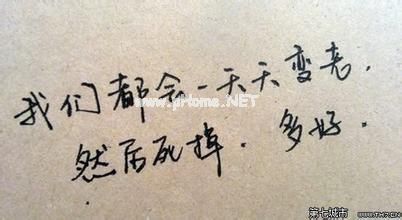 我们都会一天天变老.
然后死掉.多好.
www.prtoms.NET
第七城市
www.TH7.CN